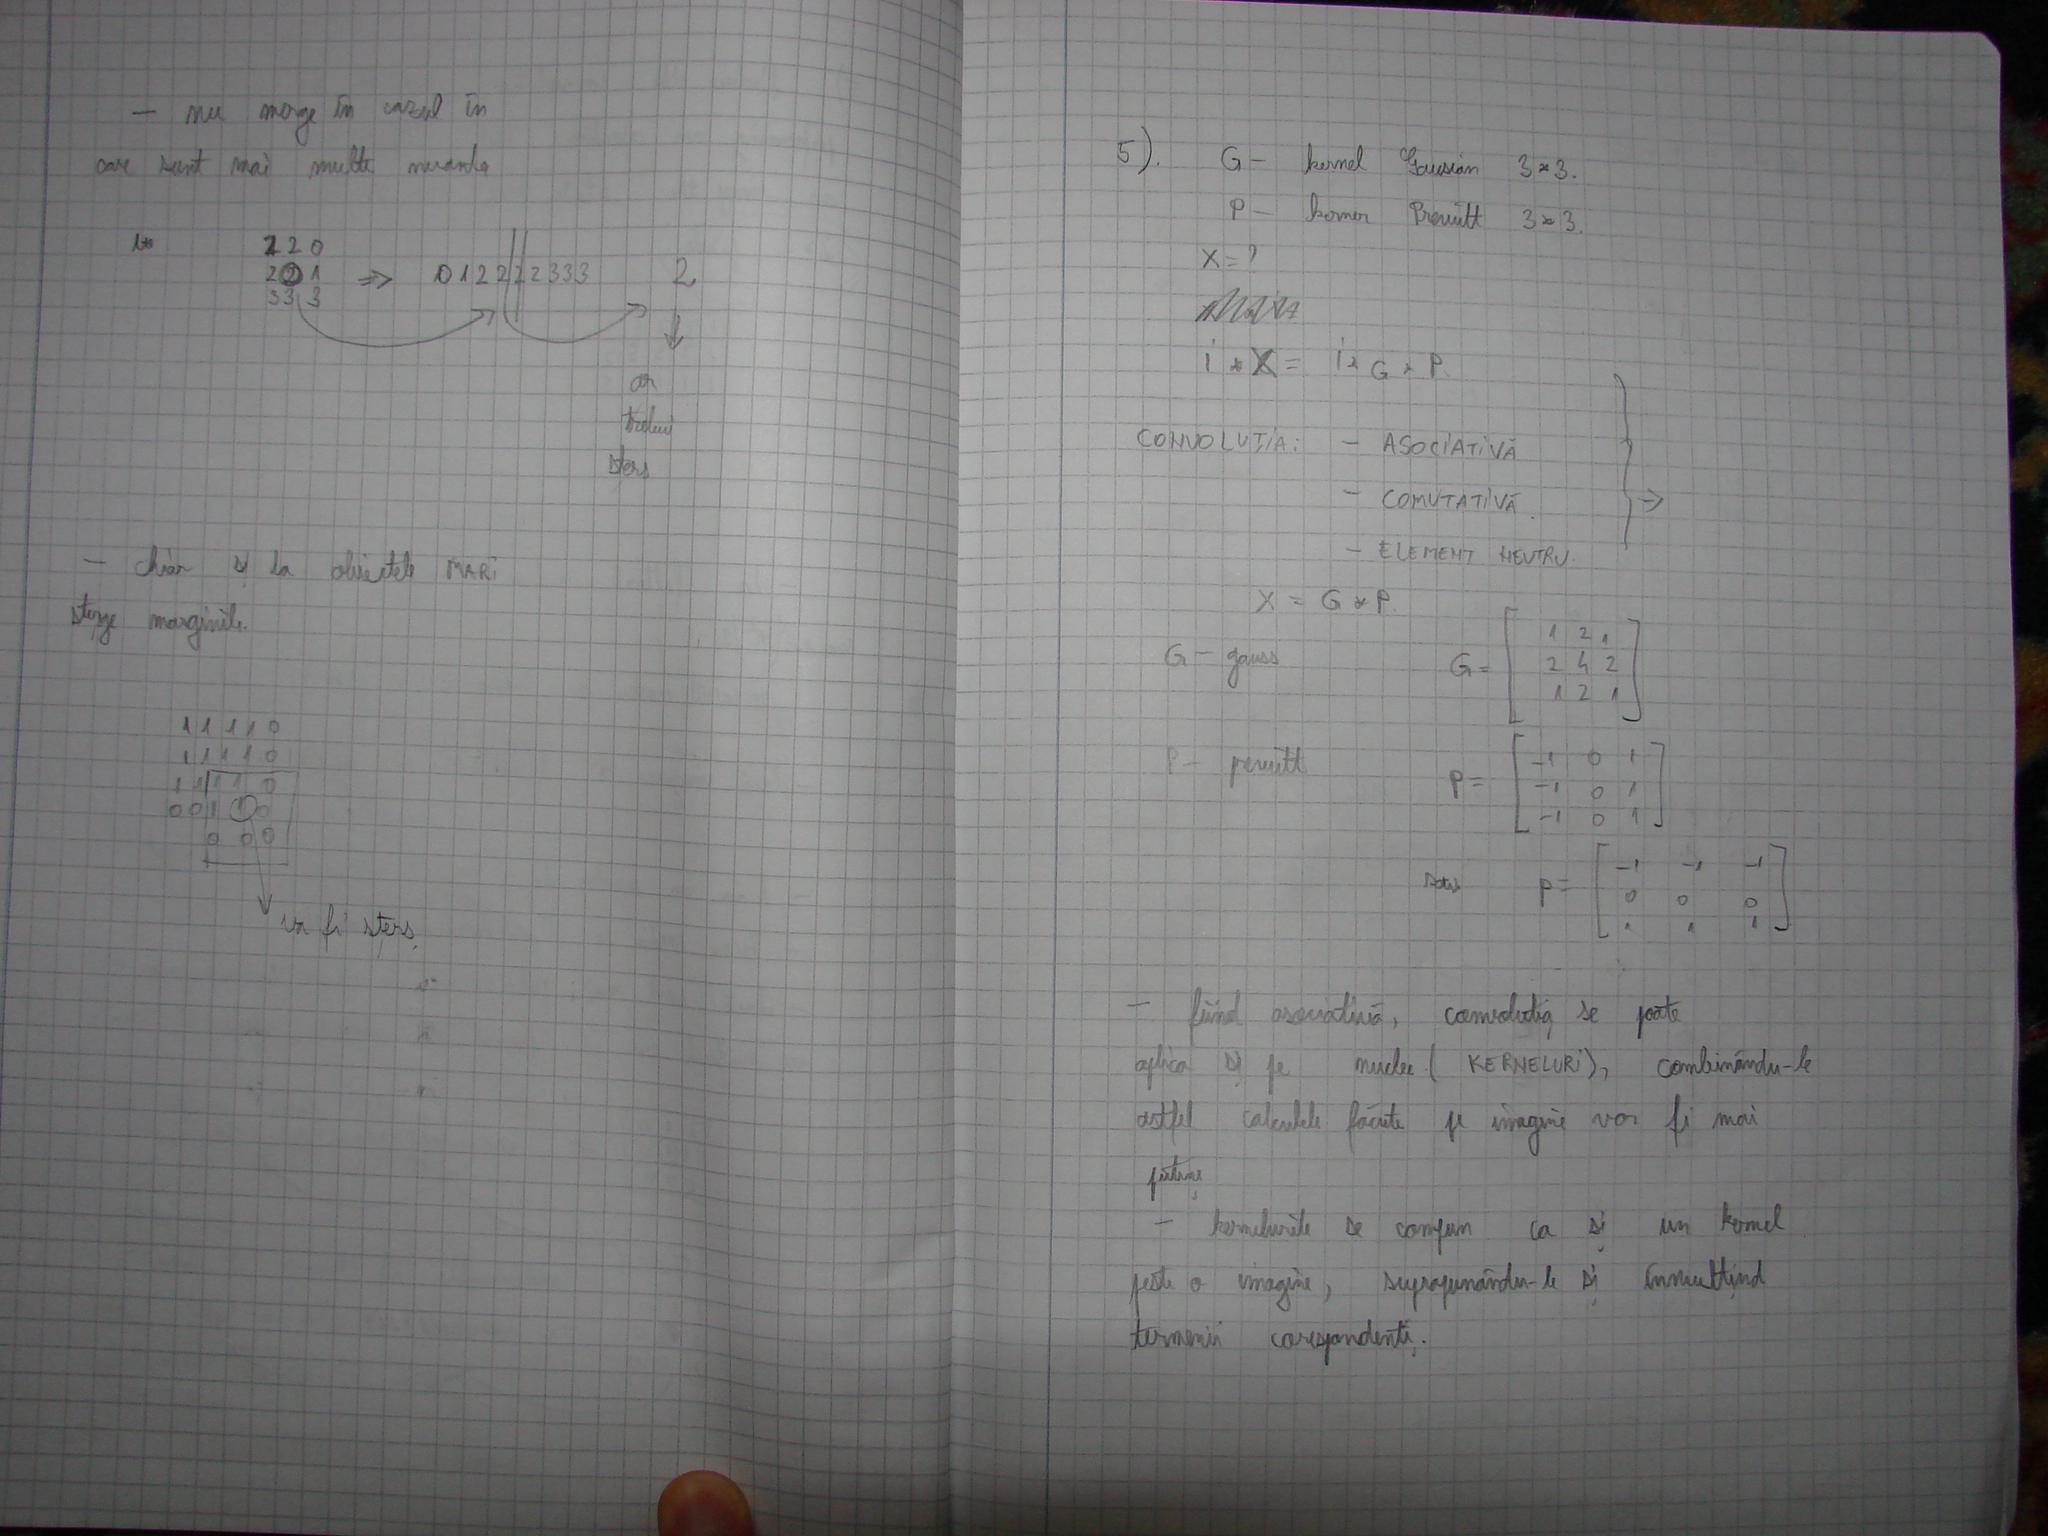 — nu merge în cazul în
care sunt mai multe nuanțe
2 2 0
2 2 1 => 0 1 2 2 2 2 3 3 3 2
3 3 3
ar
trebui
șters
— chiar și la obiectele MARI
șterge marginile.
1 1 1 1 0
1 1 1 1 0
1 1 1 1 0
0 0 1 1 0
0 0 0
va fi șters
5). G — kernel Gausian 3*3.
P — kerner Prewitt 3*3.
X = ?
i * X = i * G * P
CONVOLUȚIA: — ASOCIATIVĂ
— COMUTATIVĂ →
— ELEMENT NEUTRU.
X = G * P.
G — gauss G =
1 2 1
2 4 2
1 2 1
P — perwitt P =
-1 0 1
-1 0 1
-1 0 1
sau P =
-1 -1 -1
0 0 0
1 1 1
— fiind asociativă, convoluția se poate
aplica și pe nuclee (KERNELURI), combinându-le
astfel calculele făcute pe imagine vor fi mai
puține
— kernelurile se compun ca și un kernel
peste o imagine, suprapunându-le și înmulțind
termenii corespondenți.